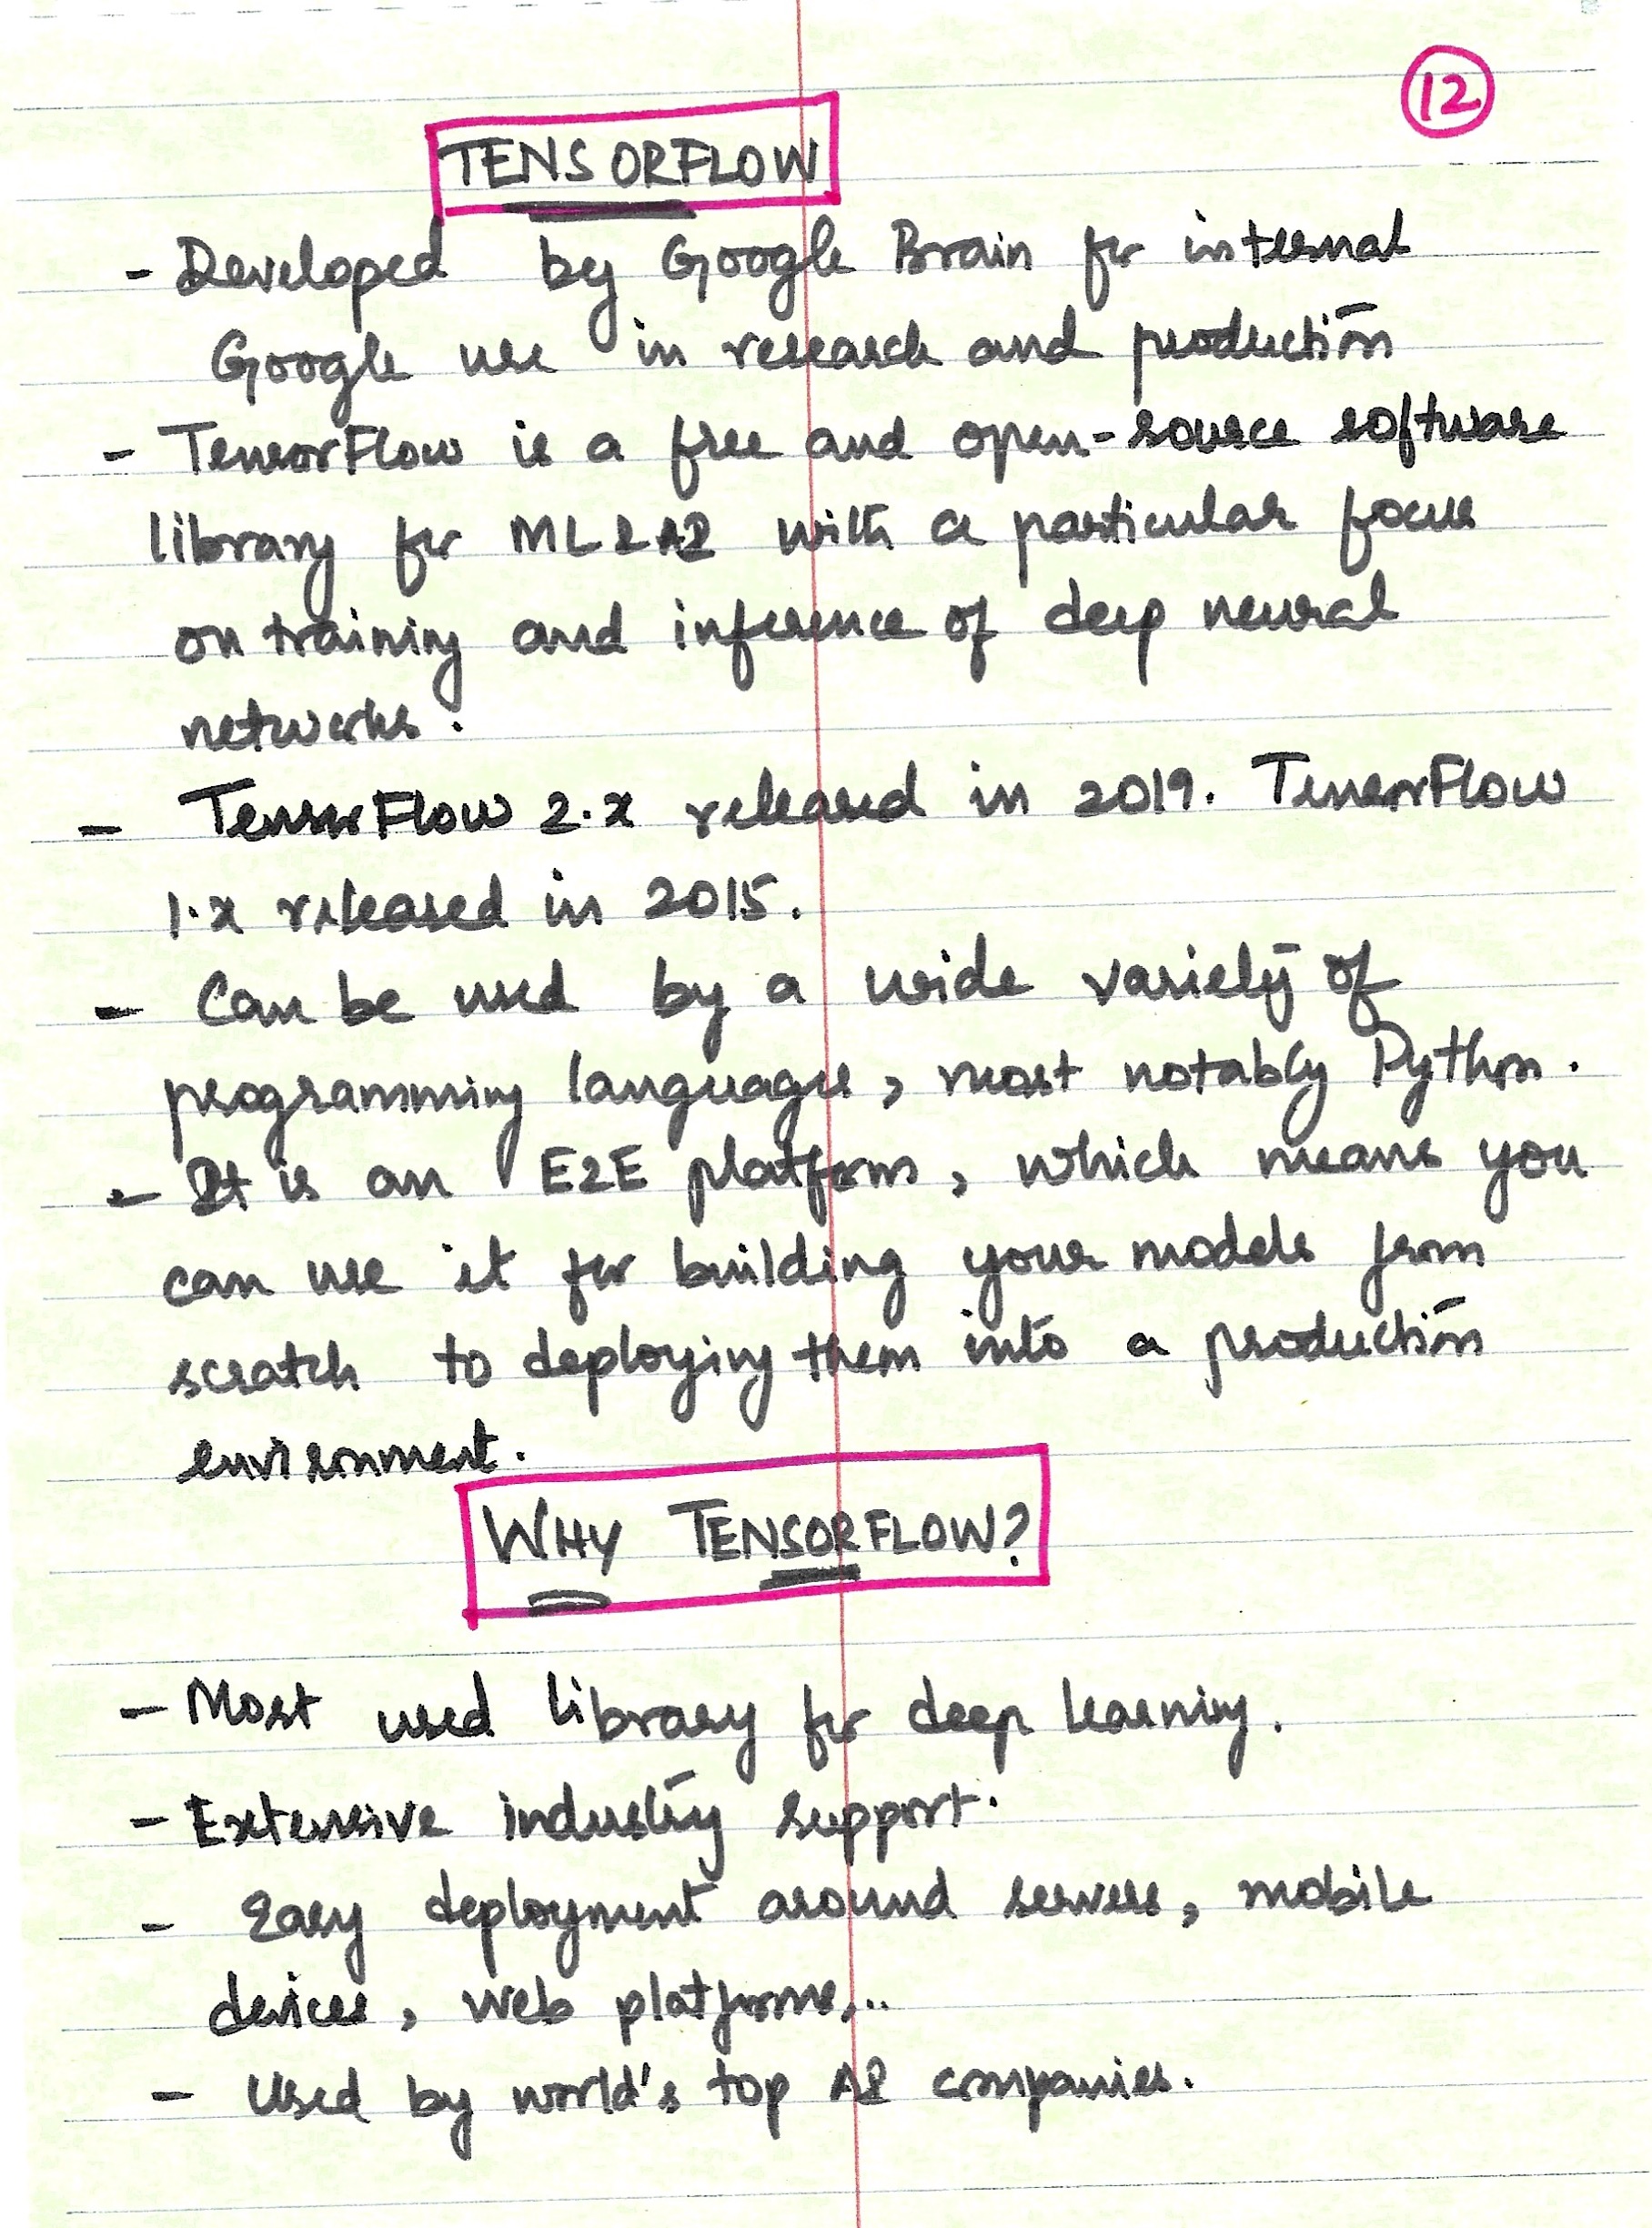 12
TENSORFLOW
- Developed by Google Brain for internal
Google use in research and production
- TensorFlow is a free and open-source software
library for ML & AI with a particular focus
on training and inference of deep neural
networks.
- TensorFlow 2.x released in 2019. TensorFlow
1.x released in 2015.
- Can be used by a wide variety of
programming languages, most notably Python.
- It is an E2E platform, which means you
can use it for building your models from
scratch to deploying them into a production
environment.
WHY TENSORFLOW?
- Most used library for deep learning.
- Extensive industry support.
- Easy deployment around servers, mobile
devices, web platforms...
- Used by world's top AI companies.